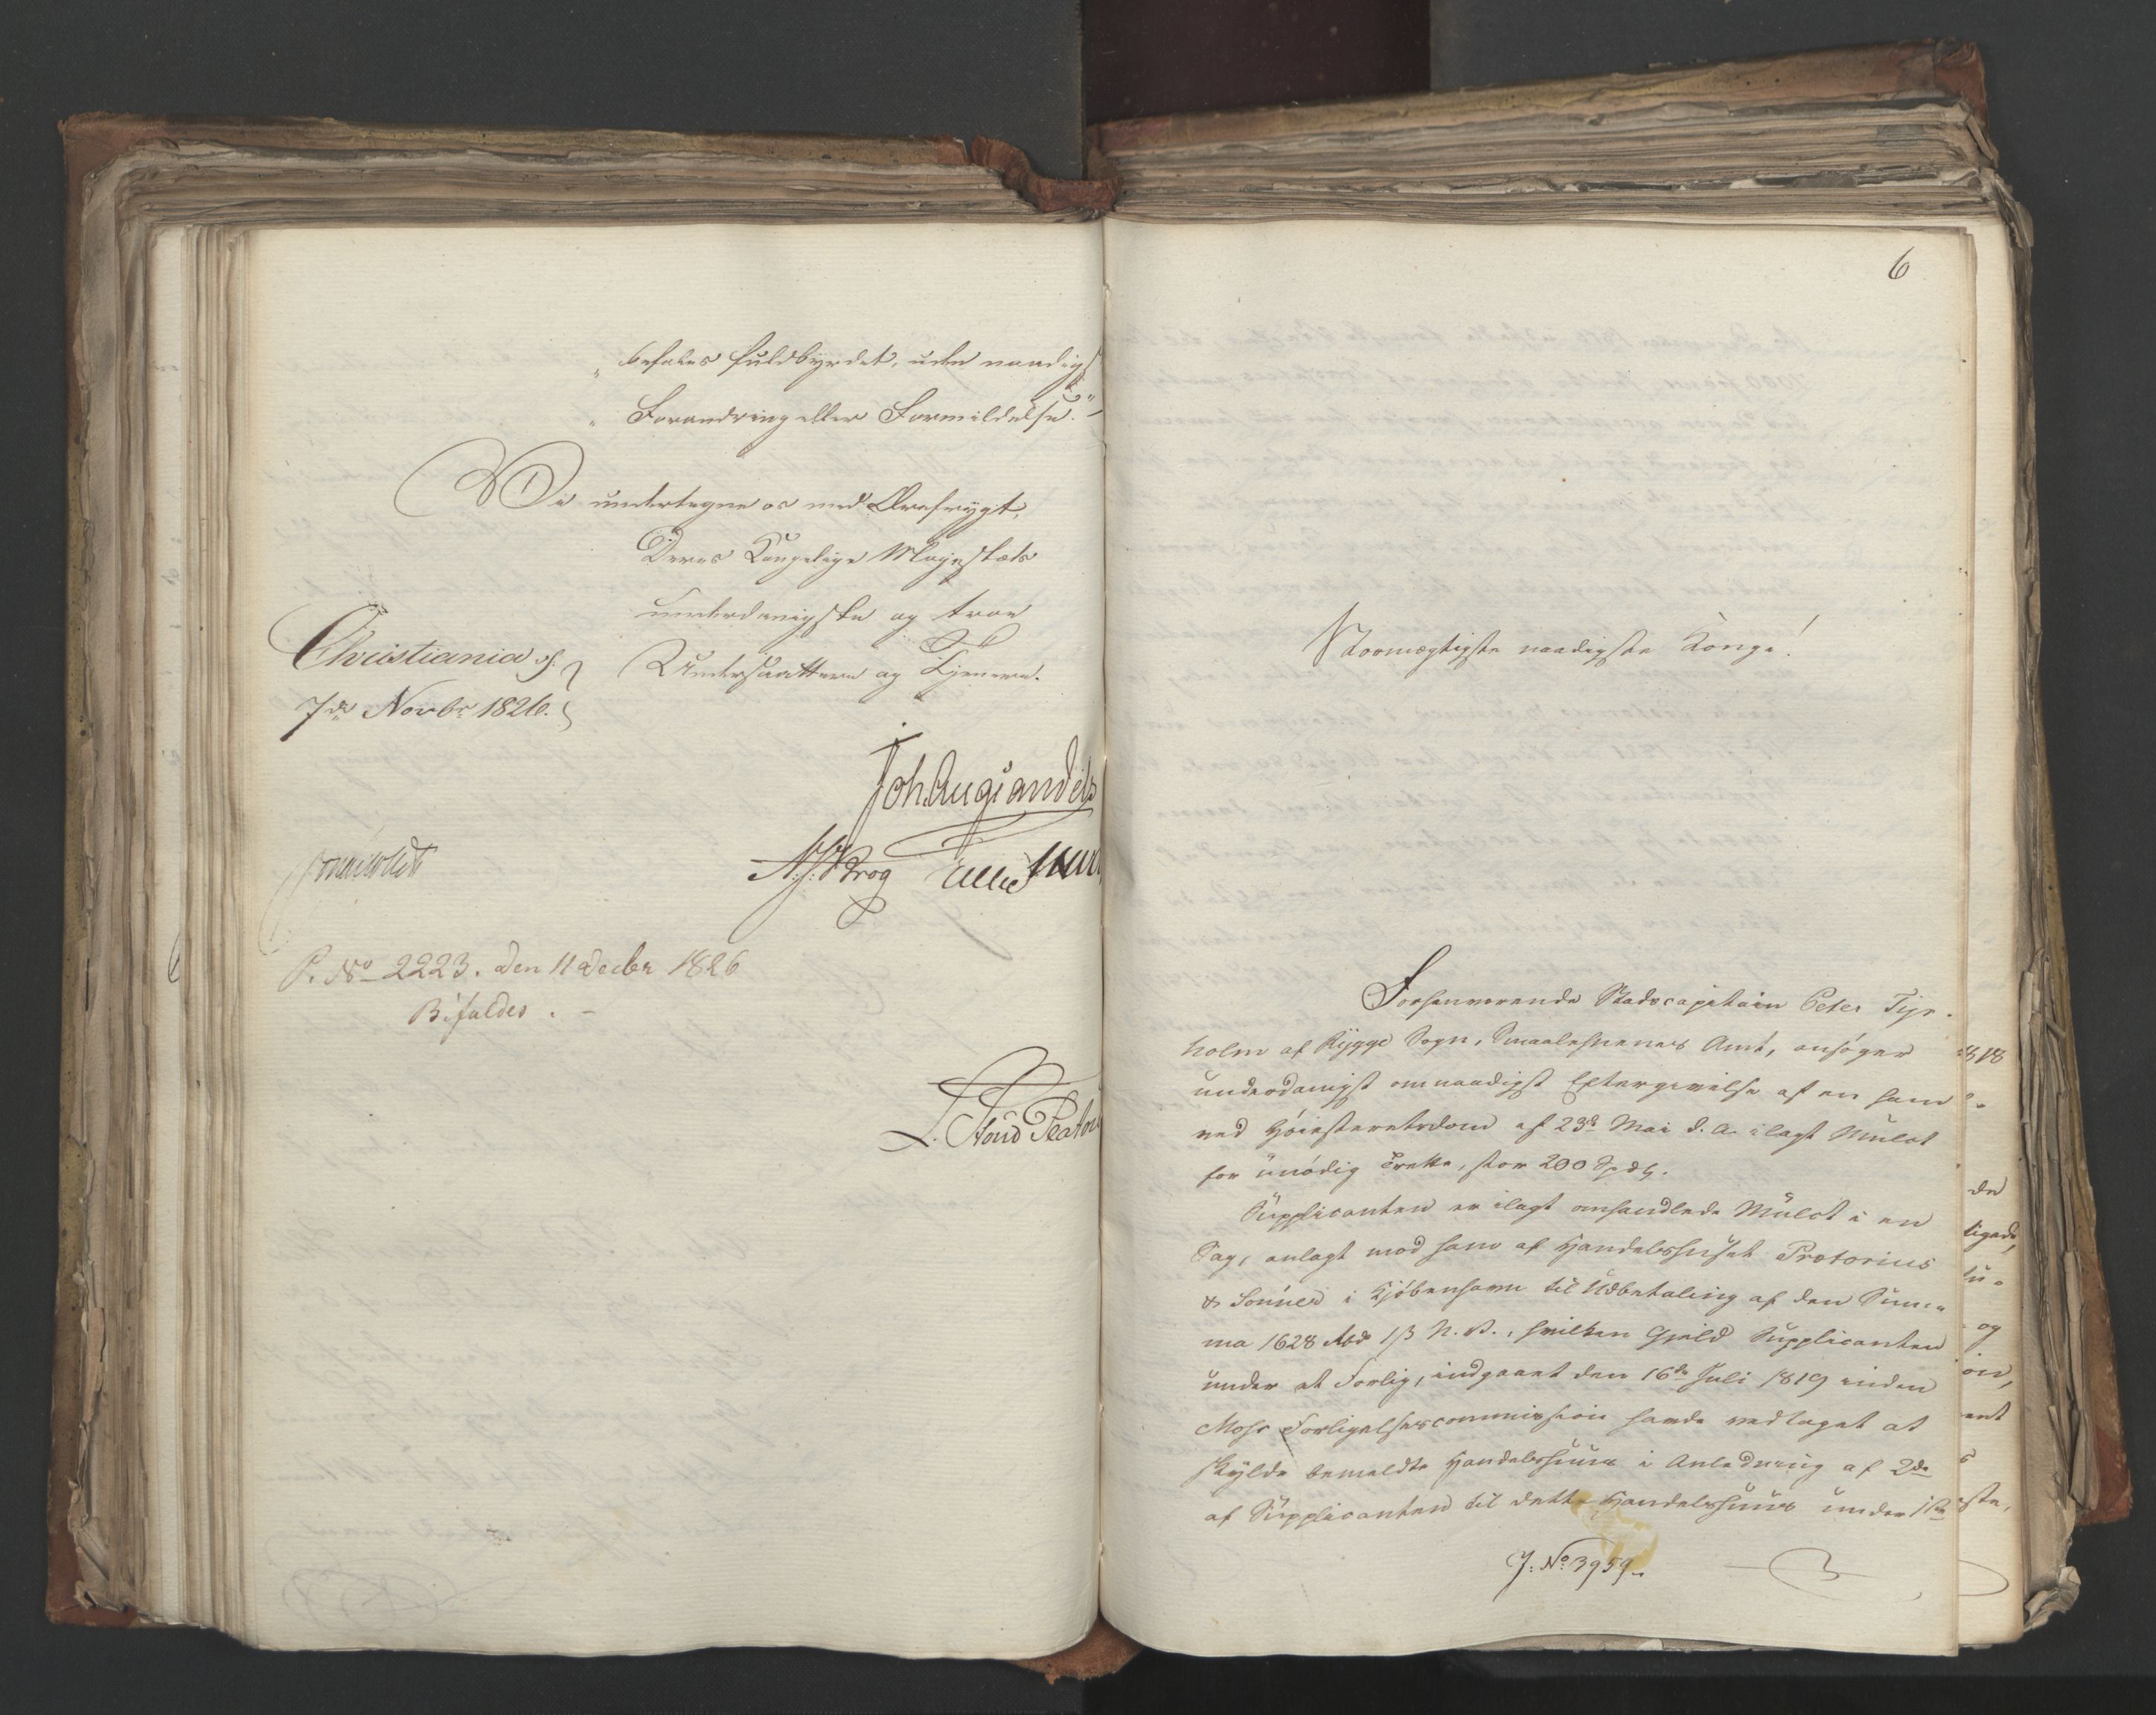 „ befales fuldbyrdet, uden naadigst
„ Forandring eller Formildelse.“
Vi undertegne os med Ærefrygt,
Deres Kongelige Majestæts
underdanigste og troe
Undersaattere og Tjenere.
Christiania d.
7de Novbr 1826.
Joh. Aug. Sandels
N. J. Krog
P. No 2223. den 11 Decbr 1826
Bifaldes. -
6
Stormægtigste naadigste Konge!
Forhenværende Stadscapitain Peter Tyr-
holm af Rygge Sogn, Smaalehnenes Amt, ansøger
underdanigst om naadigst Eftergivelse af en ham
ved Høiesteretsdom af 23de Mai d. A. ilagt Mulct
for unödig Trætte, stor 200 Spdlr.
Supplicanten er ilagt omhandlede Mulct i en
Sag, anlagt mod ham af Handelshuset Prætorius
& Sönner i Kjöbenhavn til Udbetaling af den Sum-
ma 1628 Rbd 1 β N. V., hvilken Gjeld Supplicanten
under et Forlig, indgaaet den 16de Juli 1819 inden
Moss Forligelsescommission havde vedtaget at
skylde bemeldte Handelshuus i Anledning af 2de
af Supplicanten til dette Handelshuus under 1ste
J. No 3959.